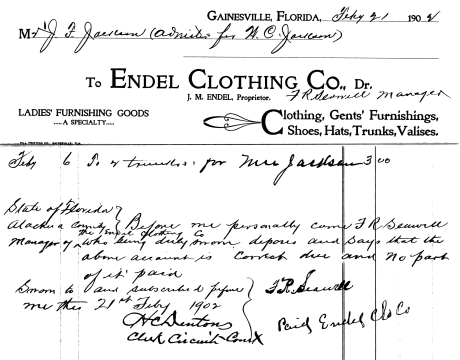 GAINESVILLE, FLORIDA, Feby 21 1902
Mr J F Jackson (Admitr for W. C. Jackson)
TO ENDEL CLOTHING CO., DR.
J. M. ENDEL, Proprietor. F R Seawell Manager
LADIES' FURNISHING GOODS
....A SPECIALTY....
Clothing, Gents' Furnishings,
Shoes, Hats, Trunks, Valises.
Feby 6 To for Mrs Jackson 3 00
State of Florida }
Alachua County { Before me personally came F R Seawell
Manager of the Endel Clothing Co
who being duly sworn deposes and says that the
above account is correct due and no part
of it paid
Sworn to and subscribed before } F. R. Seawell
me this 21st Feby 1902
H C Denton
Clerk Circuit Court
Paid Endel Clo Co